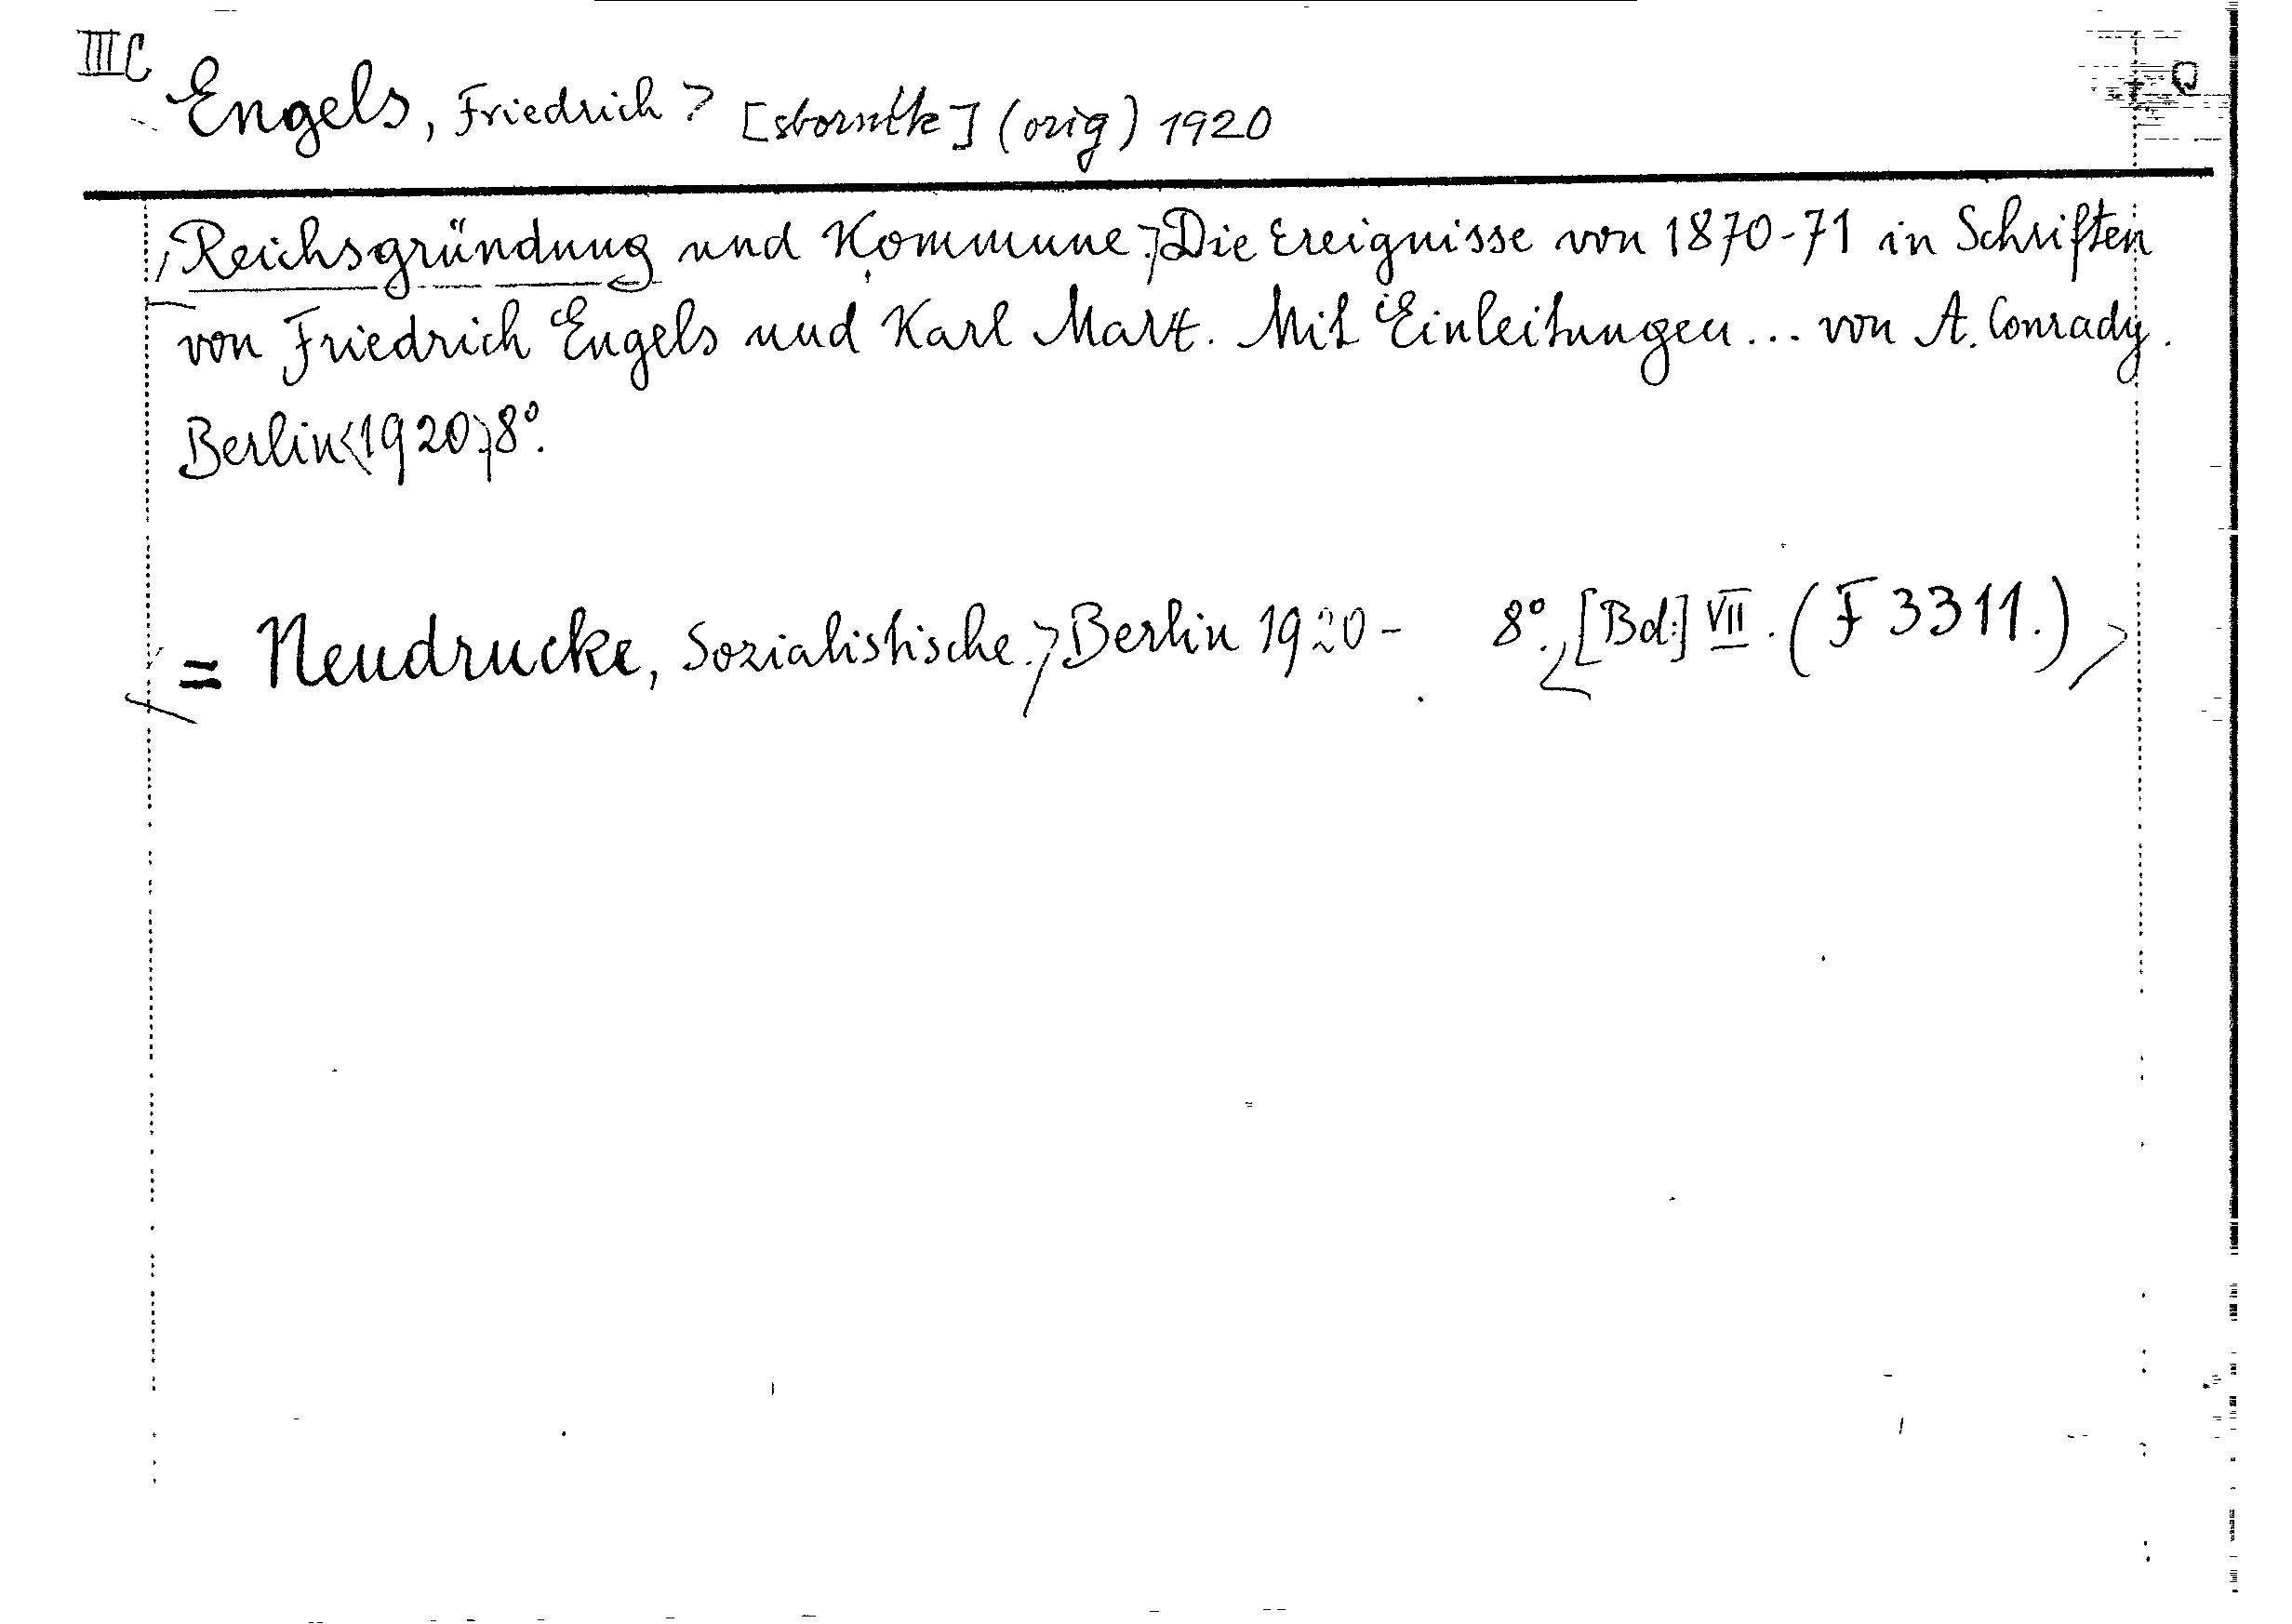 IIIC Engels, Friedrich > [sborník] (orig) 1920 Q
Reichsgründung und Kommune. Die Ereignisse von 1870-71 in Schriften
von Friedrich Engels und Karl Marx. Mit Einleitungen... von A. Conrady.
Berlin <1920> 8°.
= Neudrucke, Sozialistische. > Berlin 1920 - 8°. <[Bd.] VII. (F 3311.) >